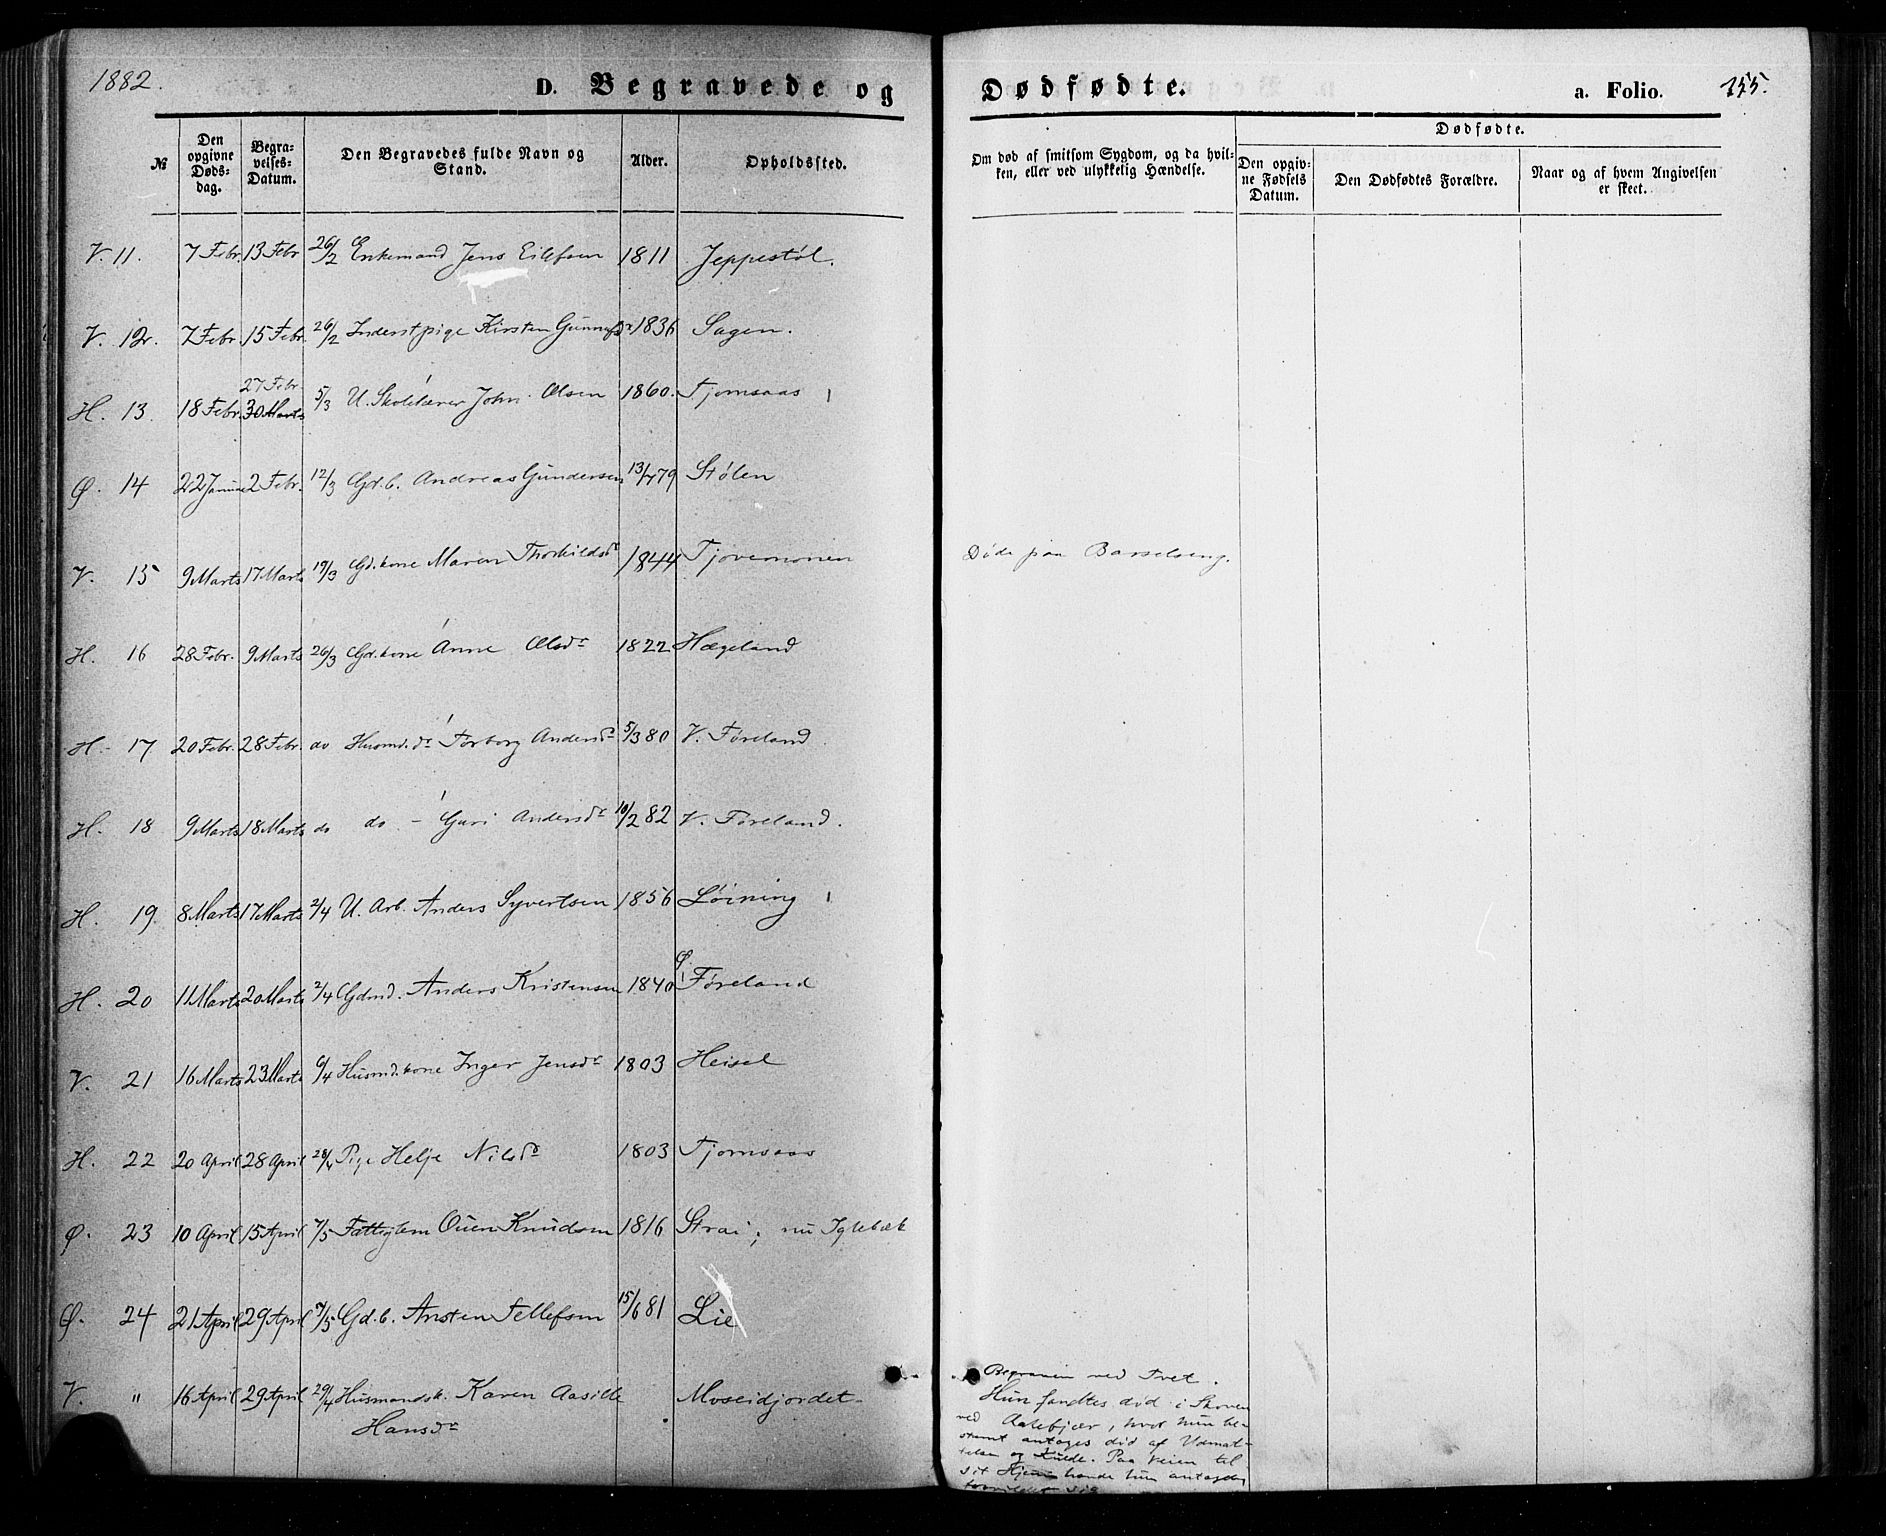 1882.
D. Begravede og Dødfødte. a. Folio. 155.
№ Den opgivne Døds-dag. Begra-velses-Datum. Den Begravedes fulde Navn og Stand. Alder. Opholdssted. Om død af smitsom Sygdom, og da hvil-ken, eller ved ulykkelig Hændelse. Dødfødte. Den opgiv-ne Fødsels Datum. Den Dødfødtes Forældre. Naar og af hvem Angivelsen er skeet.
V. 11. 7 Febr. 13 Febr 26/2 Enkemand Jens Eilefsen 1811 Jeppestøl.
V. 12. 7 Febr. 15 Febr. 26/2 Inderstpige Kirsten Gunnufsdr 1836 Sagen.
27 Febr.
H. 13. 18 Febr. 30 Marts 5/3 U. Skolelærer John Olsen 1860. Tjomsaas
Ø. 14 22 Januar 2 Febr. 12/3 Gd.b. Andreas Gundersen 13/479 Stølen
V. 15 9 Marts 17 Marts 19/3 Gd.kone Maren Thorkildsdr 1844 Tjovemoen Døde paa Barselseng.
H. 16 28 Febr. 9 Marts 26/3 Gd.kone Anne Olsdr 1822 Hægeland
H. 17 20 Febr. 28 Febr. do Husmd.dr Torborg Andersdr 5/380 V. Føreland
H. 18 9 Marts 18 Marts do do - Guri Andersdr 10/282 V. Føreland.
H. 19. 8 Marts 17 Marts 2/4 U. Arb. Anders Syvertsen 1856 Løining
H. 20 11 Marts 20 Marts 2/4 Gdmd. Anders Kristensen 1840 Ø. Føreland
V. 21 16 Marts 23 Marts 6/4 Husmd.kone Inger Jensdr 1803 Heisel
H. 22 20 April 28 April 28/4 Pige Helje Nilsdr 1803 Tjomsaas
Ø. 23 10 April 15 April 7/5 Fattiglem Ouen Knudsen 1816 Strai; nu Iglebæk
Ø. 24 21 April 29 April 7/5 Gd.b. Ansten Tellefsen 15/681 Lie
V. " 16 April 29 April 29/4 Husmandsk. Karen Aasille Moseidjordet-
Hansdr
Begraven ved Tvet.
Hun fandtes død i Skoven
ved Aalebjær, hvor hun be-
stemt antages død af Udmat-
telse og Kulde. Paa Veien til
sit Hjem havde hun antagelig
forvildet sig